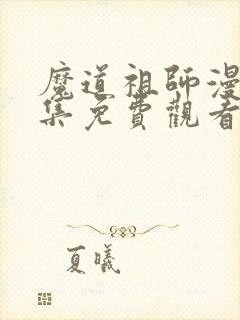 魔道祖師漫
集免費觀看
夏曦